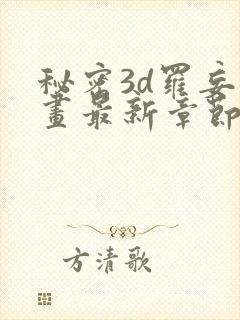 秘密3d羅妄
畫最新章節
方清歌